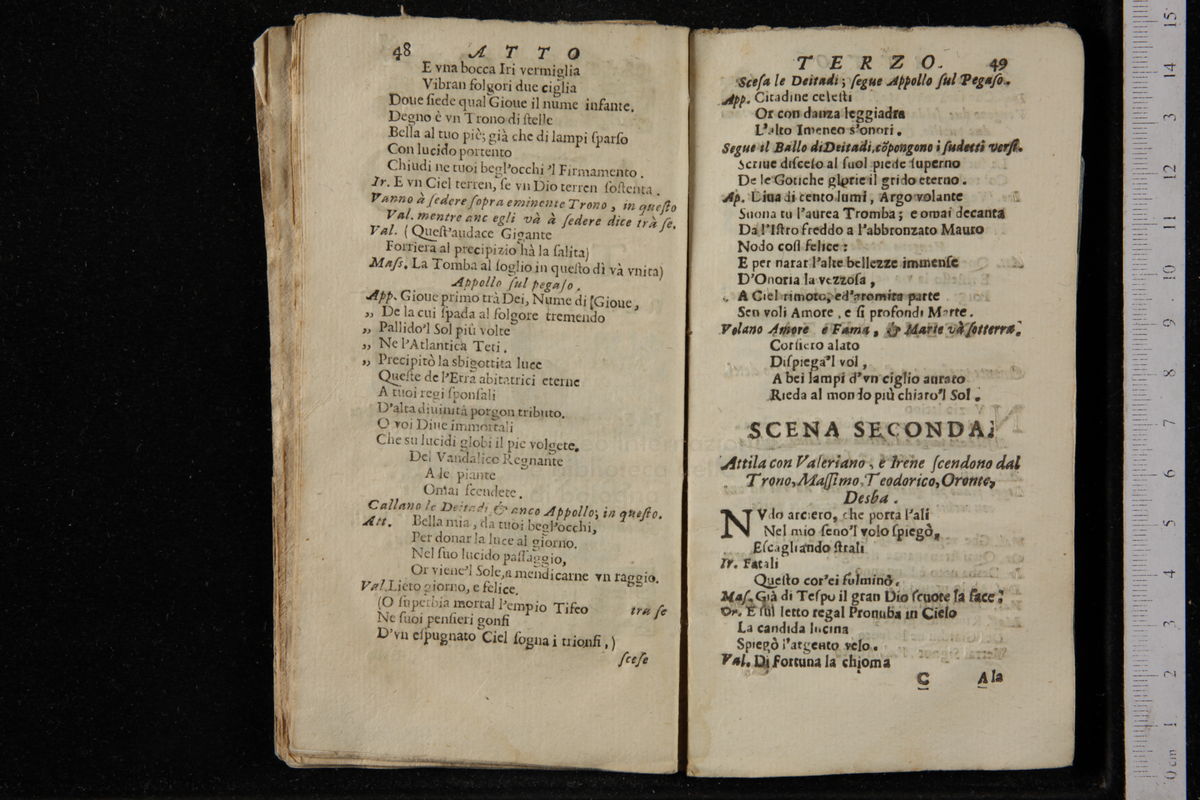 48 ATTO
E vna bocca Iri vermiglia
Vibran folgori due ciglia
Doue ſiede qual Gioue il nume infante.
Degno è vn Trono di ſtelle
Bella al tuo piè; già che di lampi ſparſo
Con lucido portento
Chiudi ne tuoi begl'occhi 'l Firmamento.
Ir. E vn Ciel terren, ſe vn Dio terren ſoſtenta.
Vanno à ſedere ſopra eminente Trono, in queſto
Val. mentre anc egli và à ſedere dice trà ſe.
Val. (Queſt'audace Gigante
Forriera al precipizio hà la ſalita)
Maſs. La Tomba al ſoglio in queſto dì và vnita)
Appollo ſul pegaſo.
App. Gioue primo trà Dei, Nume di Gioue,
„ De la cui ſpada al folgore tremendo
„ Pallido'l Sol più volte
„ Ne l'Atlantica Teti.
„ Precipitò la sbigottita luce
Queſte de l'Etra abitatrici eterne
A tuoi regi ſponſali
D'alta diuinità porgon tributo.
O voi Diue immortali
Che su lucidi globi il pie volgete.
Del Vandalico Regnante
A le piante
Omai ſcendete.
Callano le Deitadi, & anco Appollo; in queſto.
Att. Bella mia, da tuoi begl'occhi,
Per donar la luce al giorno.
Nel ſuo lucido paſſaggio,
Or viene'l Sole, a mendicarne vn raggio.
Val. Lieto giorno, e felice.
(O ſuperbia mortal l'empio Tifeo tra ſe
Ne ſuoi penſieri gonfi
D'vn eſpugnato Ciel ſogna i trionfi,)
ſceſe
TERZO. 49
Sceſa le Deitadi; ſegue Appollo ſul Pegaſo.
App. Citadine celeſti
Or con danza leggiadra
L'alto Imeneo s'onori.
Segue il Ballo di Deitadi, cõpongono i ſudetti verſi.
Scriue diſceſo al ſuol piede ſuperno
De le Gotiche glorie il grido eterno.
Ap. Diua di cento lumi, Argo volante
Suona tu l'aurea Tromba; e omai decanta
Da l'Iſtro freddo a l'abbronzato Mauro
Nodo coſì felice:
E per narar l'alte bellezze immenſe
D'Onoria la vezzoſa,
A Ciel rimoto, ed'eromita parte
Sen voli Amore, e ſi profondi Marte.
Volano Amore e Fama, & Marte và ſotterra.
Corſiero alato
Diſpiega'l vol,
A bei lampi d'vn ciglio aurato
Rieda al mondo più chiaro'l Sol.
SCENA SECONDA.
Attila con Valeriano, e Irene ſcendono dal
Trono, Maſſimo, Teodorico, Oronte,
Desba.
NVdo arciero, che porta l'ali
Nel mio ſeno'l volo ſpiegò,
Eſcagliando ſtrali
Ir. Fatali
Queſto cor'ei fulminò.
Maſ. Già di Teſpu il gran Dio ſcuote la face:
Or. E ſùl letto regal Pronuba in Cielo
La candida lucina
Spiegò l'argento velo.
Val. Di Fortuna la chioma
C Ala